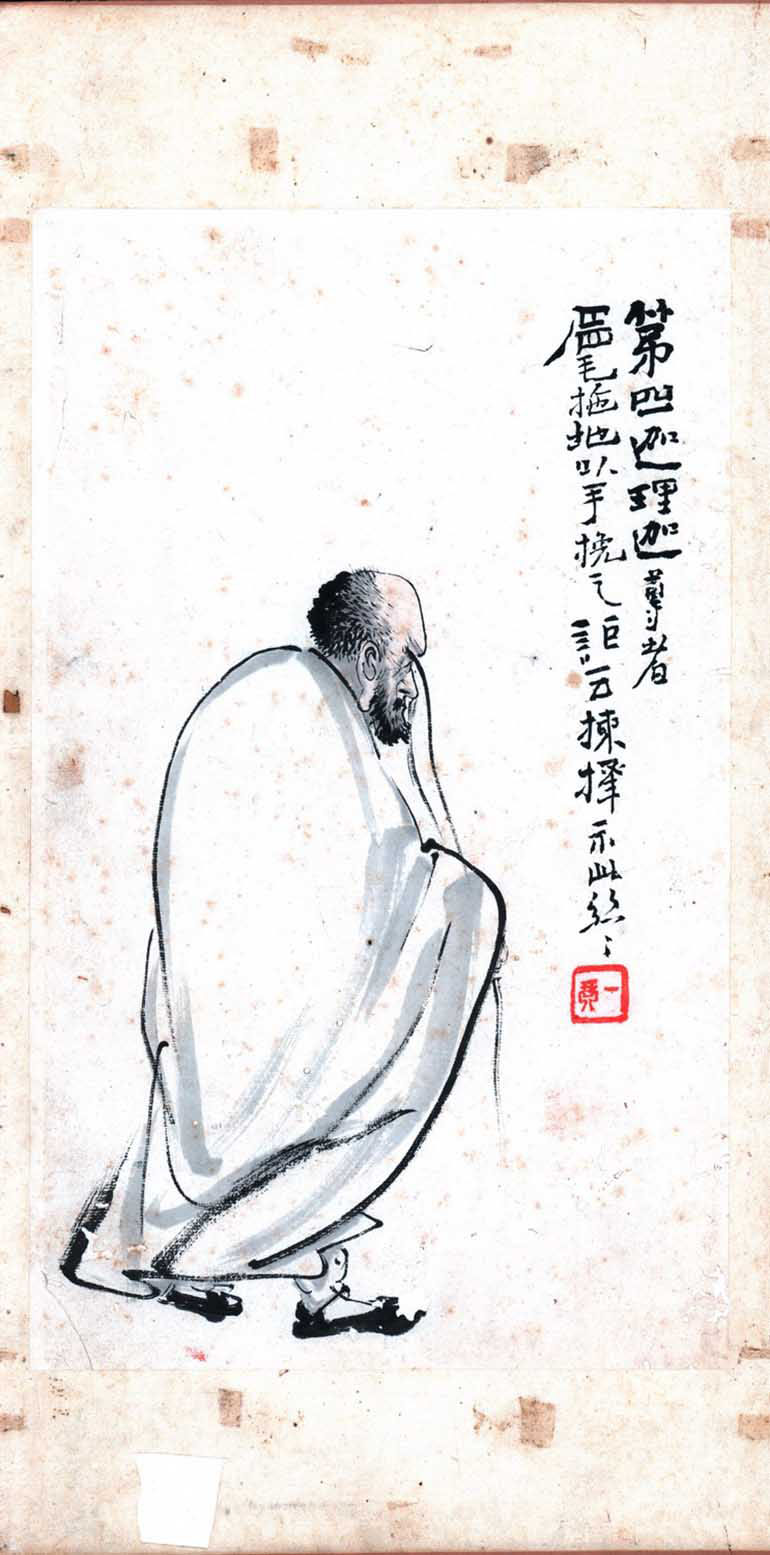 第四迦理迦尊者
眉毛拖地以手挽之詎云揀擇示此絲〻